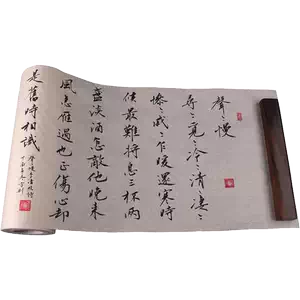 聲々慢
尋々覓々冷々清々淒々
慘々戚々乍暖還寒時
候最難將息三杯兩
盞淡酒怎敵他晚來
風急雁過也正傷心卻
是舊時相識